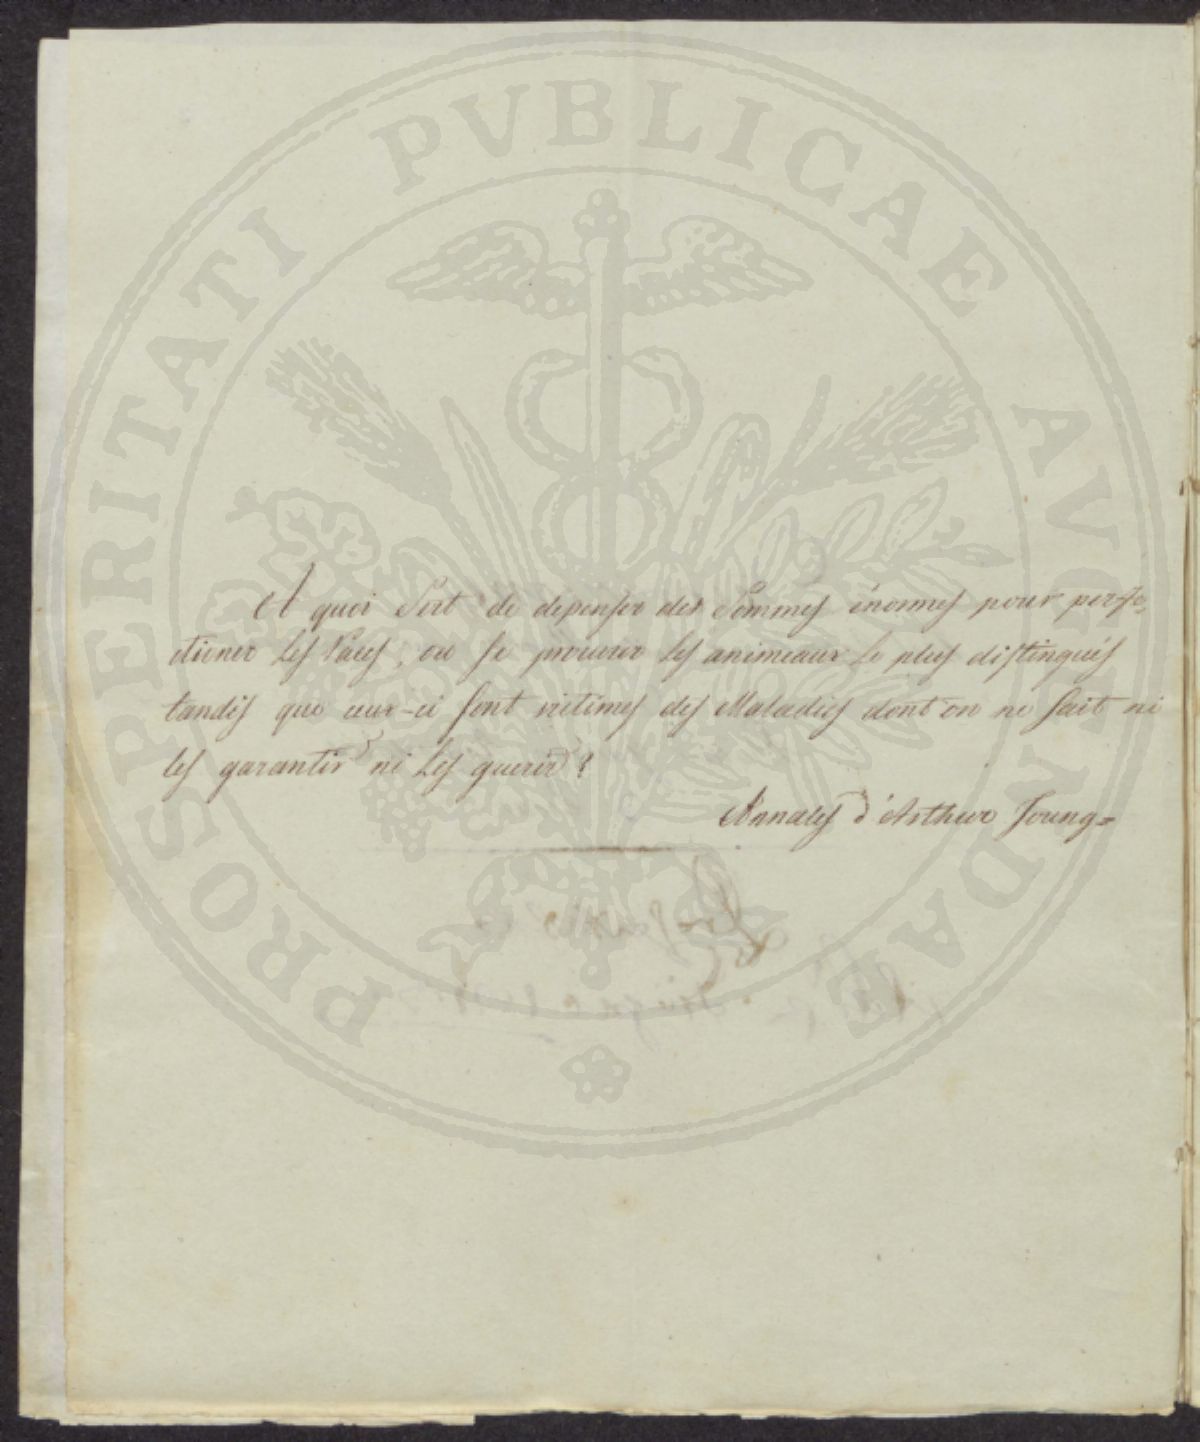 PROSPERITATI PUBLICAE AUGENDAE
A quoi sert de depenser des sommes énormes pour perfe-
ctioner les races, ou se procurer les animeaux le plus distingués
tandis que ceux-ci sont victimes des Maladies dont on ne sait ni
les garantir ni les guerir?
Annales d'Arthur Joung=